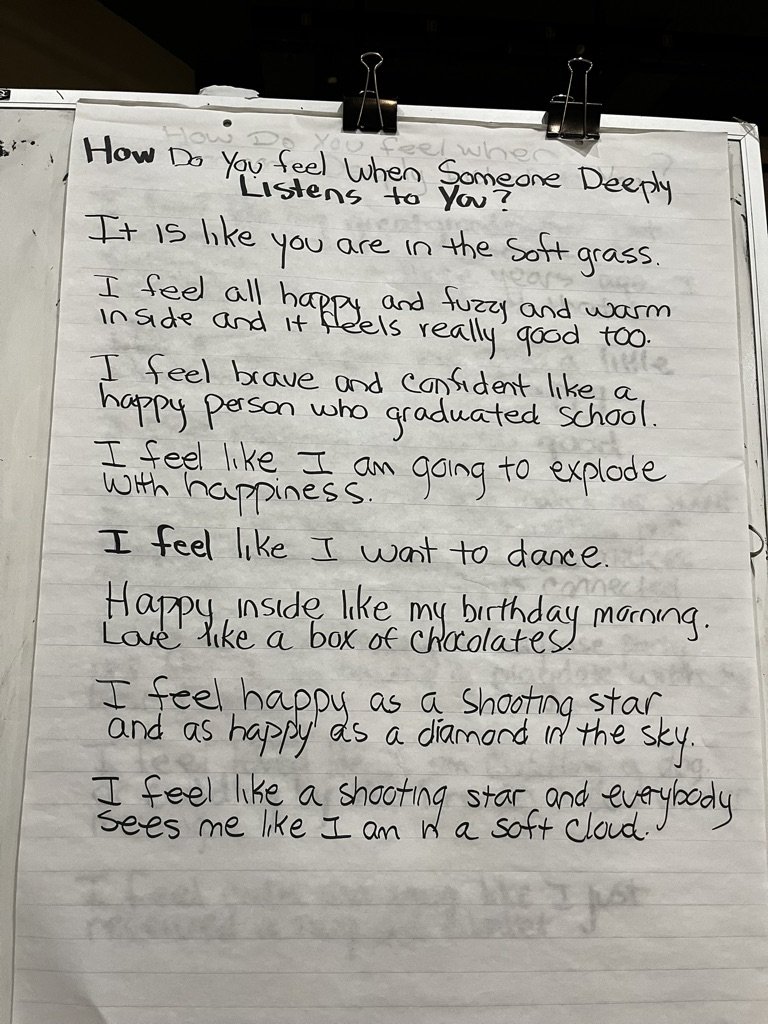 How Do You feel When Someone Deeply
Listens to You?
It is like you are in the soft grass.
I feel all happy and fuzzy and warm
inside and it feels really good too.
I feel brave and confident like a
happy person who graduated school.
I feel like I am going to explode
with happiness.
I feel like I want to dance.
Happy inside like my birthday morning.
Love like a box of chocolates.
I feel happy as a shooting star
and as happy as a diamond in the sky.
I feel like a shooting star and everybody
sees me like I am in a soft cloud.